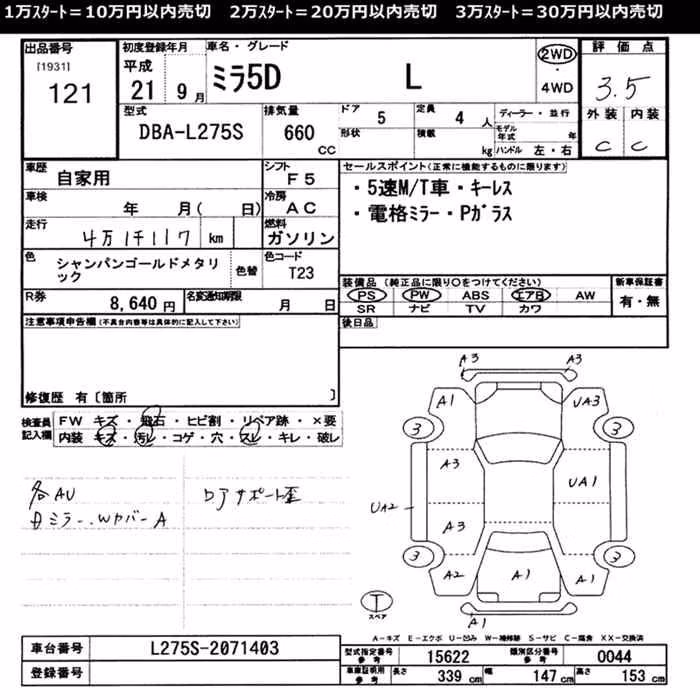 1万ｽﾀｰﾄ＝10万円以内売切　2万ｽﾀｰﾄ＝20万円以内売切　3万ｽﾀｰﾄ＝30万円以内売切
出品番号
[1931]
121
初度登録年月
平成
21 9月
車名・グレード
ミラ5D L
2WD
・
4WD
評価点
3.5
外装 内装
C C
型式
DBA-L275S
排気量
660 CC
ドア 5
形状
定員 4 人
積載 kg
ディーラー・並行
モデル年式 年
ハンドル 左・右
車歴
自家用
シフト
F5
車検
年 月( 日)
冷房
AC
走行
4万1千117 km
燃料
ガソリン
色
シャンパンゴールドメタリック
色替
色コード
T23
R券
8,640 円
名変通知期限
月 日
セールスポイント(正常に機能するものに限ります)
・5速M/T車・ｷｰﾚｽ
・電格ﾐﾗｰ・Pｶﾞﾗｽ
装備品 (純正品に限り○をつけてください)
PS PW ABS エアB AW
SR ナビ TV カワ
新車保証書
有・無
後日品
注意事項申告欄(不具合内容等は具体的に記入して下さい)
修復歴 有〔箇所 〕
検査員記入欄
FW キズ・飛石・ヒビ割・リペア跡・×要
内装 キズ・汚レ・コゲ・穴・スレ・キレ・破レ
各AU
ミラー、WカバーA
ロアサポート歪
A3 A3
A1 UA3
3 3
A3 UA1
UA2
A3
3 3
A2 A1 A1
T
スペア
A1
A－キズ E－エクボ U－凹み W－補修跡 S－サビ C－腐食 XX－交換済
車台番号
L275S-2071403
登録番号
型式指定番号 参考
15622
類別区分番号 参考
0044
車庫証明用 参考
長さ 339 cm 幅 147 cm 高さ 153 cm